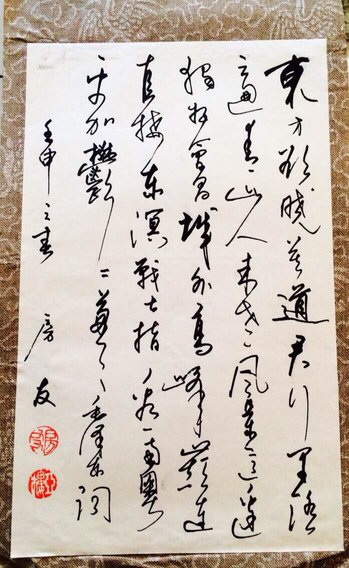 東方欲曉莫道君行早踏
遍青山人未老風景這邊
獨好會昌城外高峰巔連
直接东溟戰士指看南粤
更加鬱〻葱〻毛澤东詞
壬申之春 房友